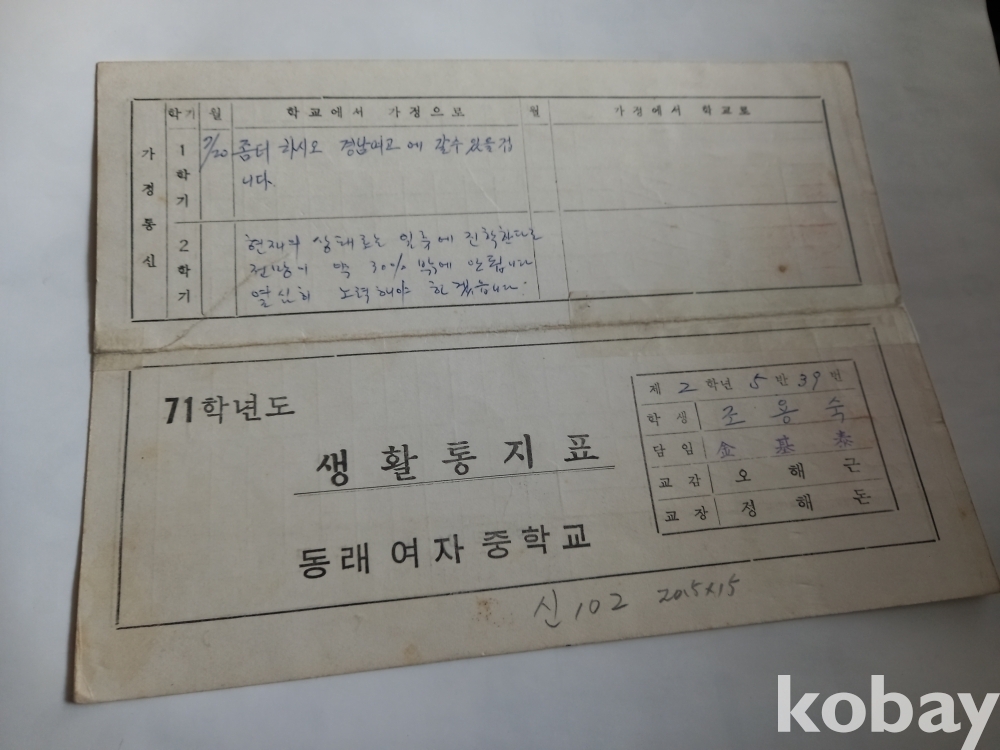 학기 월 학교에서 가정으로 월 가정에서 학교로
가정통신
1학기 7/20 좀더 하시오 경남여고에 갈수있을겁
니다.
2학기 현재의 상태로는 일류에 진학한다는
전망이 약 30% 밖에 안됩니다
열심히 노력해야 하겠습니다.
71학년도
생활통지표
동래여자중학교
제 2 학년 5 반 39 번
학생 조용숙
담임 金基泰
교감 오해근
교장 정해돈
신 102 20.5x15
kobay